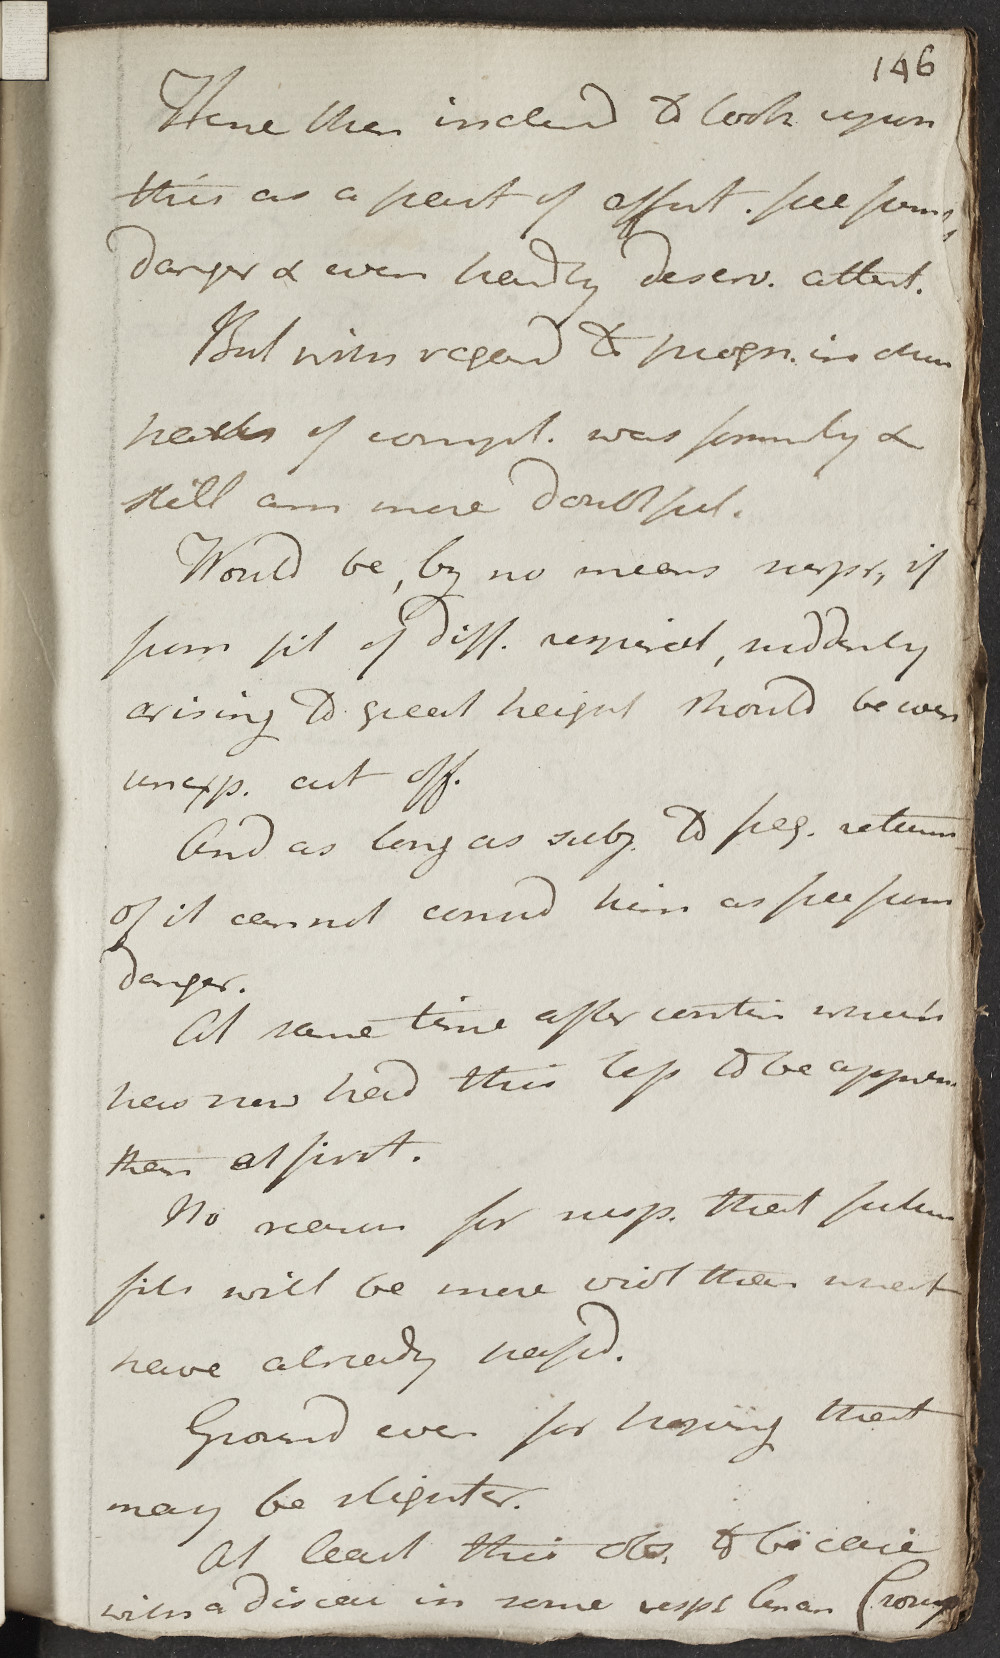 146
Have then inclin'd to look upon
this as a part of affect. free from
danger & even hardly deserv. attent.
But with regard to progn. in other
parts of compl. was formerly &
still am more doubtful.
Would be, by no means surpr, if
from fit of diff. respirat, suddenly
arising to great height should be even
unexp. cut off.
And as long as subj. to freq. returns
of it cannot consid him as free from
danger.
At same time after contin which
has now had this less to be appreh
than at first.
No reason for susp. that future
fits will be more viol than what
have already pass'd.
Ground even for hoping that
may be slighter.
At least this obs. to be case
with a disease in some resps Croup